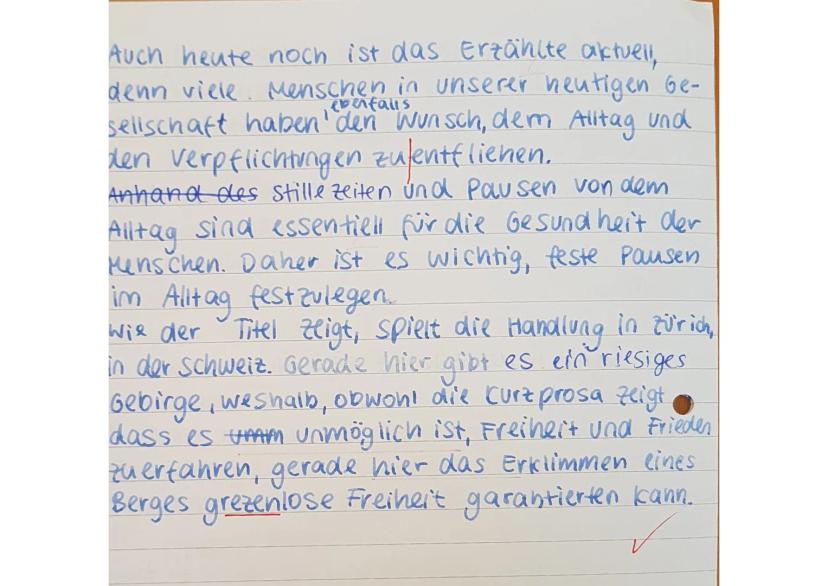 Auch heute noch ist das Erzählte aktuell,
denn viele Menschen in unserer heutigen Ge-
sellschaft haben ebenfalls den Wunsch, dem Alltag und
den Verpflichtungen zu entfliehen.
Anhand des Stille Zeiten und Pausen von dem
Alltag sind essentiell für die Gesundheit der
Menschen. Daher ist es wichtig, feste Pausen
im Alltag festzulegen.
Wie der Titel zeigt, spielt die Handlung in Zürich,
in der Schweiz. Gerade hier gibt es ein riesiges
Gebirge, weshalb, obwohl die Kurzprosa zeigt
dass es unmöglich ist, Freiheit und Frieden
zu erfahren, gerade hier das Erklimmen eines
Berges grezenlose Freiheit garantierten kann.